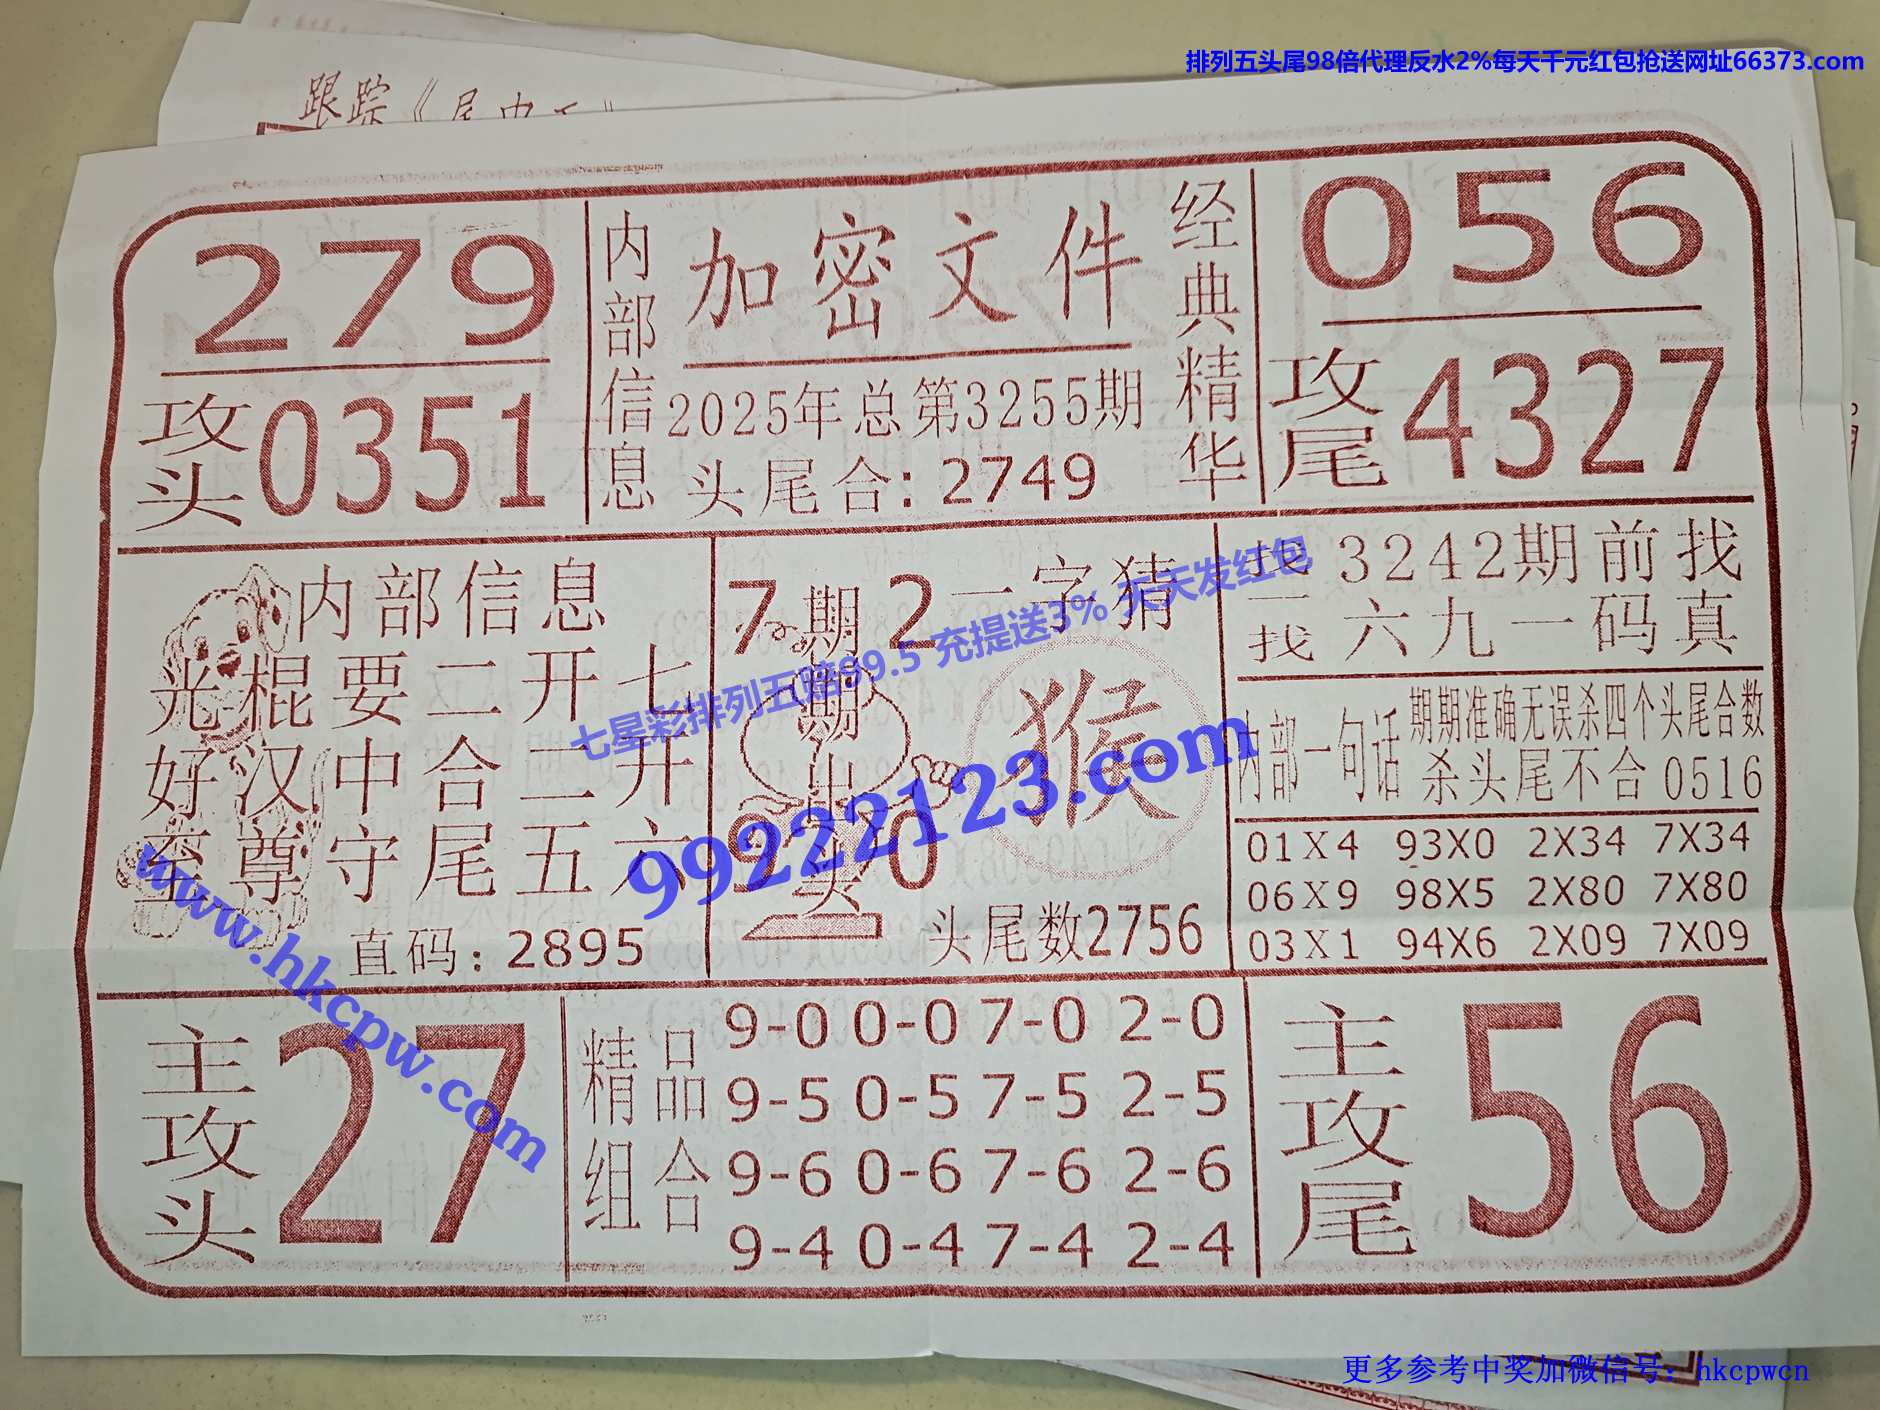 排列五头尾98倍代理反水2%每天千元红包抢送网址66373.com
跟踪《尾中王》
279
攻头0351
内部信息
加密文件
2025年总第3255期
头尾合:2749
经典精华
056
攻尾4327
内部信息
光棍要二开七
好汉中合二开
至尊守尾五六
直码:2895
7 2
9 0
期期出头
一字猜
猴
头尾数2756
找一找
3242期前找
六九一码真
内部一句话
期期准确无误杀四个头尾合数
杀头尾不合 0516
01X4 93X0 2X34 7X34
06X9 98X5 2X80 7X80
03X1 94X6 2X09 7X09
主攻头
27
精品组合
9-0 0-0 7-0 2-0
9-5 0-5 7-5 2-5
9-6 0-6 7-6 2-6
9-4 0-4 7-4 2-4
主攻尾
56
七星彩排列五赔99.5 充提送3% 天天发红包
99222123.com
www.hkcpw.com
更多参考中奖加微信号：hkcpwcn